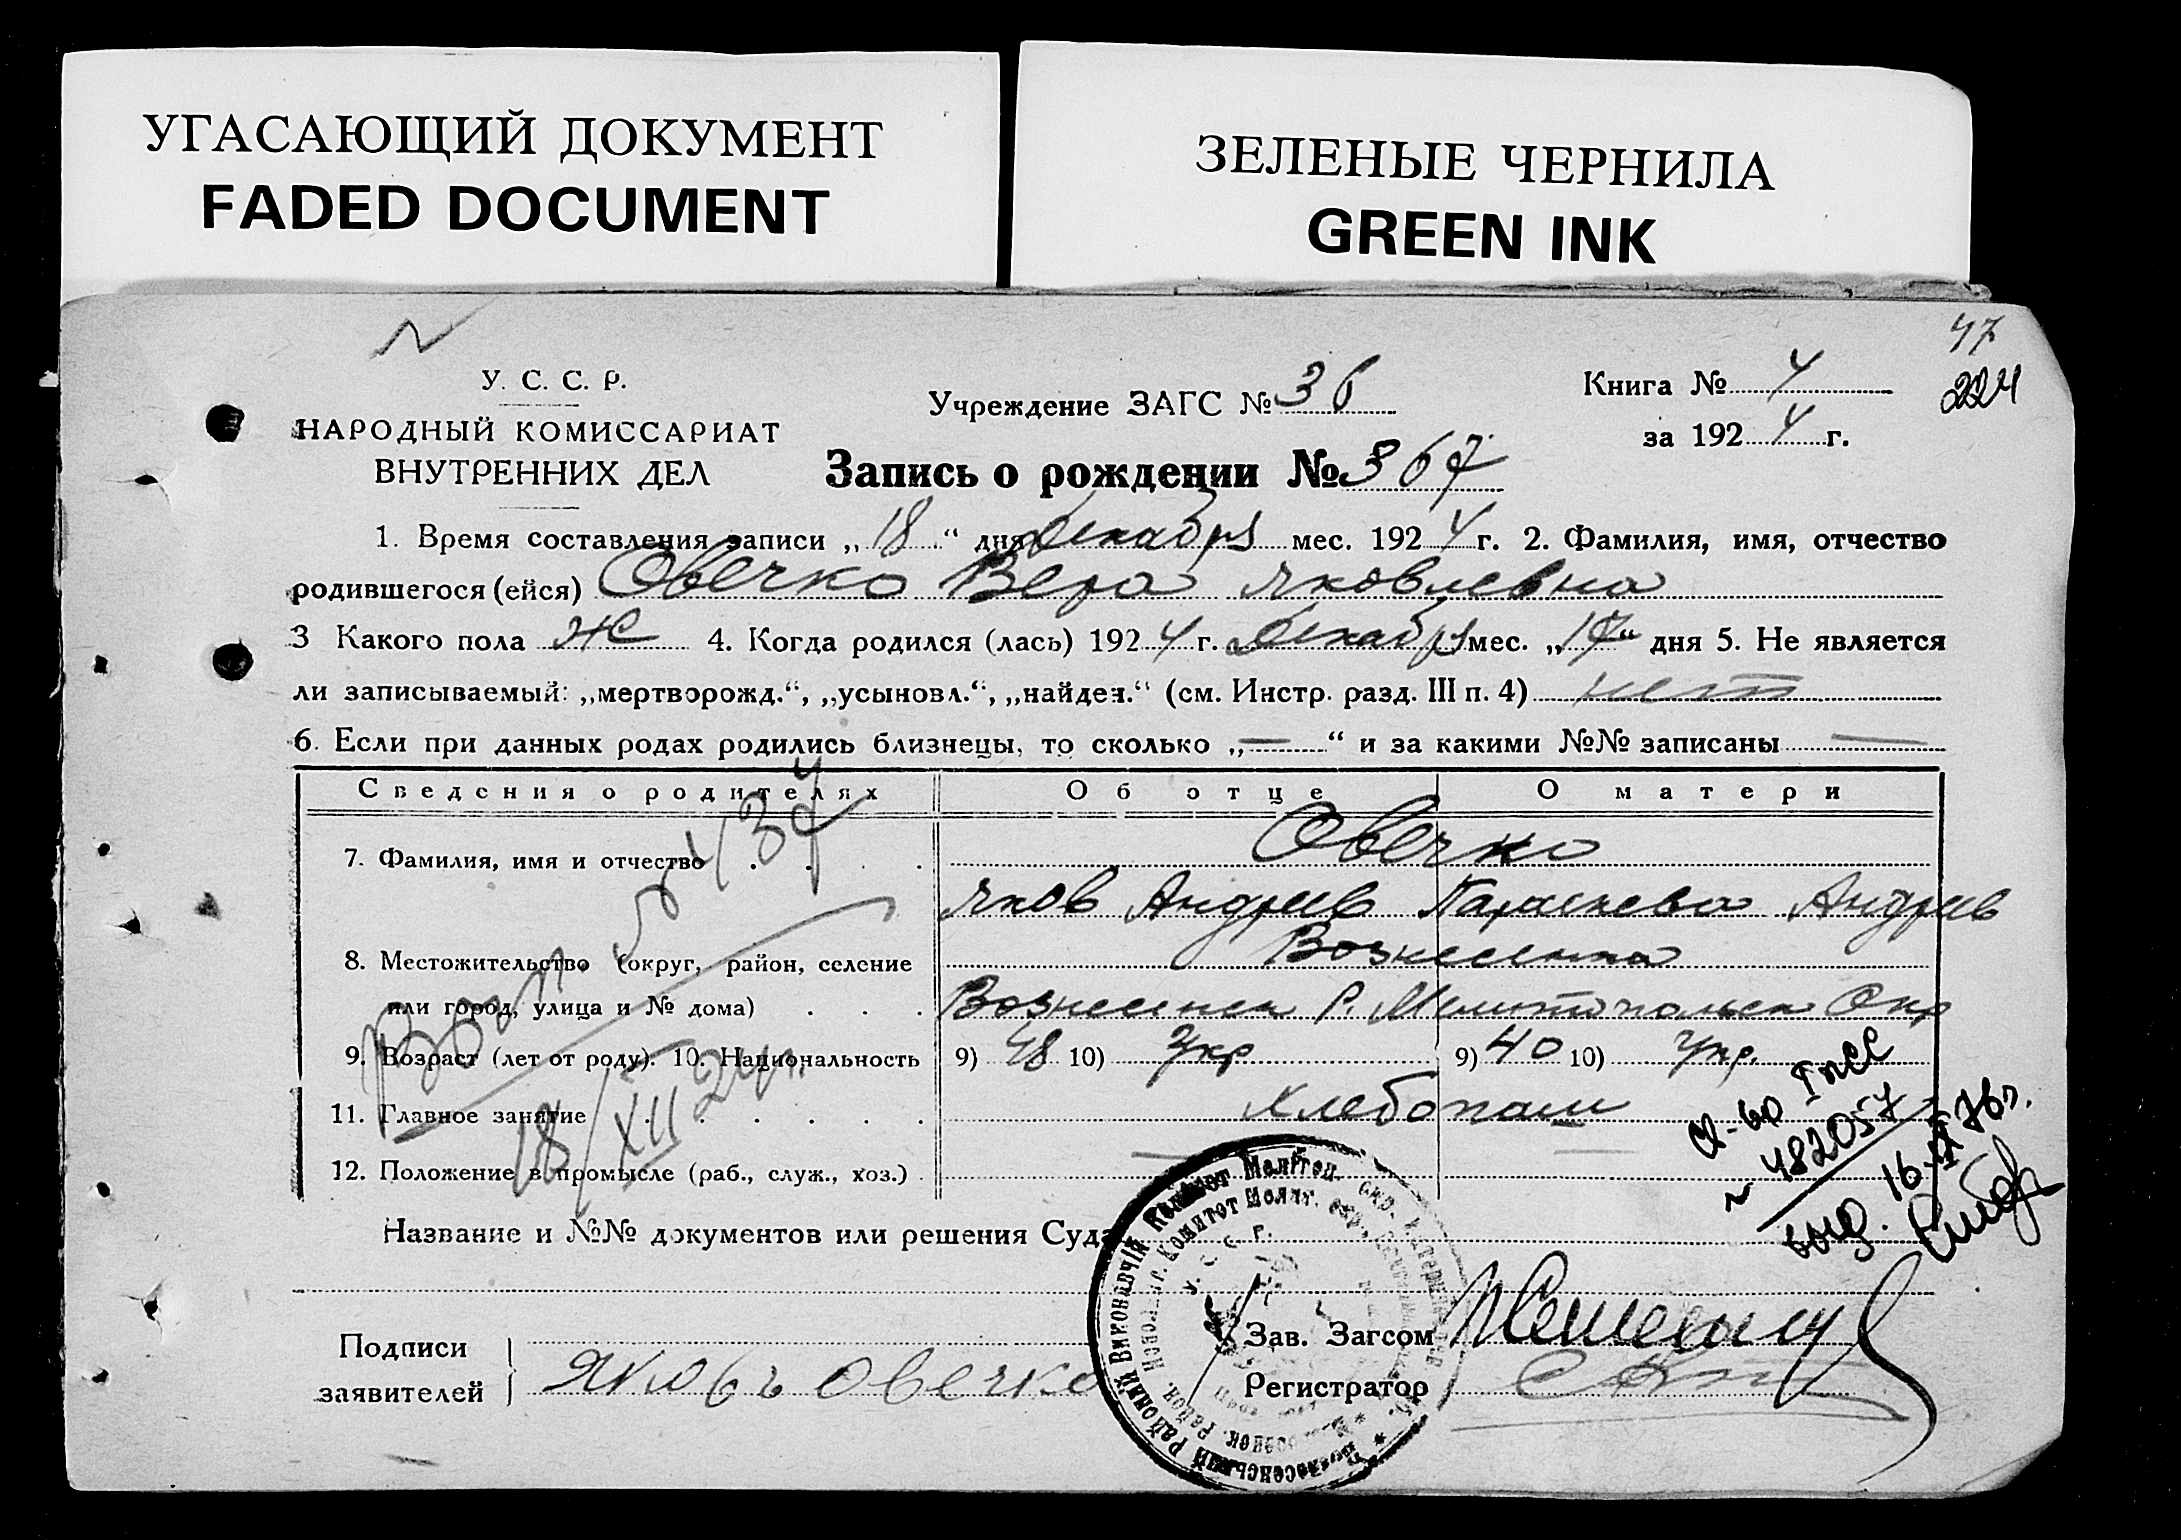 УГАСАЮЩИЙ ДОКУМЕНТ
FADED DOCUMENT
ЗЕЛЕНЫЕ ЧЕРНИЛА
GREEN INK
47
224
У. С. С. Р.
НАРОДНЫЙ КОМИССАРИАТ
ВНУТРЕННИХ ДЕЛ
Учреждение ЗАГС № 36
Книга № 4
за 1924 г.
Запись о рождении № 367
1. Время составления записи „18“ дня Декабря мес. 1924 г. 2. Фамилия, имя, отчество
родившегося (ейся) Овечко Вера Яковлевна
3 Какого пола Ж 4. Когда родился (лась) 1924 г. Декабря мес. „17“ дня 5. Не является
ли записываемый: „мертворожд.“, „усыновл.“, „найден.“ (см. Инстр. разд. III п. 4) нет
6. Если при данных родах родились близнецы, то сколько „—“ и за какими №№ записаны —
Сведения о родителях Об отце О матери
7. Фамилия, имя и отчество . . . . Овечко
Яков Андреев Параскева Андреев
8. Местожительство (округ, район, селение Вознесенка
или город, улица и № дома) . . . Вознесенск Р. Мелитопольск Окр
9. Возраст (лет от роду). 10. Национальность 9) 48 10) Укр 9) 40 10) Укр.
11. Главное занятие . . . . . . Хлебопаш
12. Положение в промысле (раб., служ., хоз.) . — —
№ 437
18/XII 24 г.
№ 482057
выд. 16.II 76 г.
Название и №№ документов или решения Суда
У. С. Р. Р.
Подписи
заявителей
Яковъ Овечко
Зав. Загсом
Регистратор